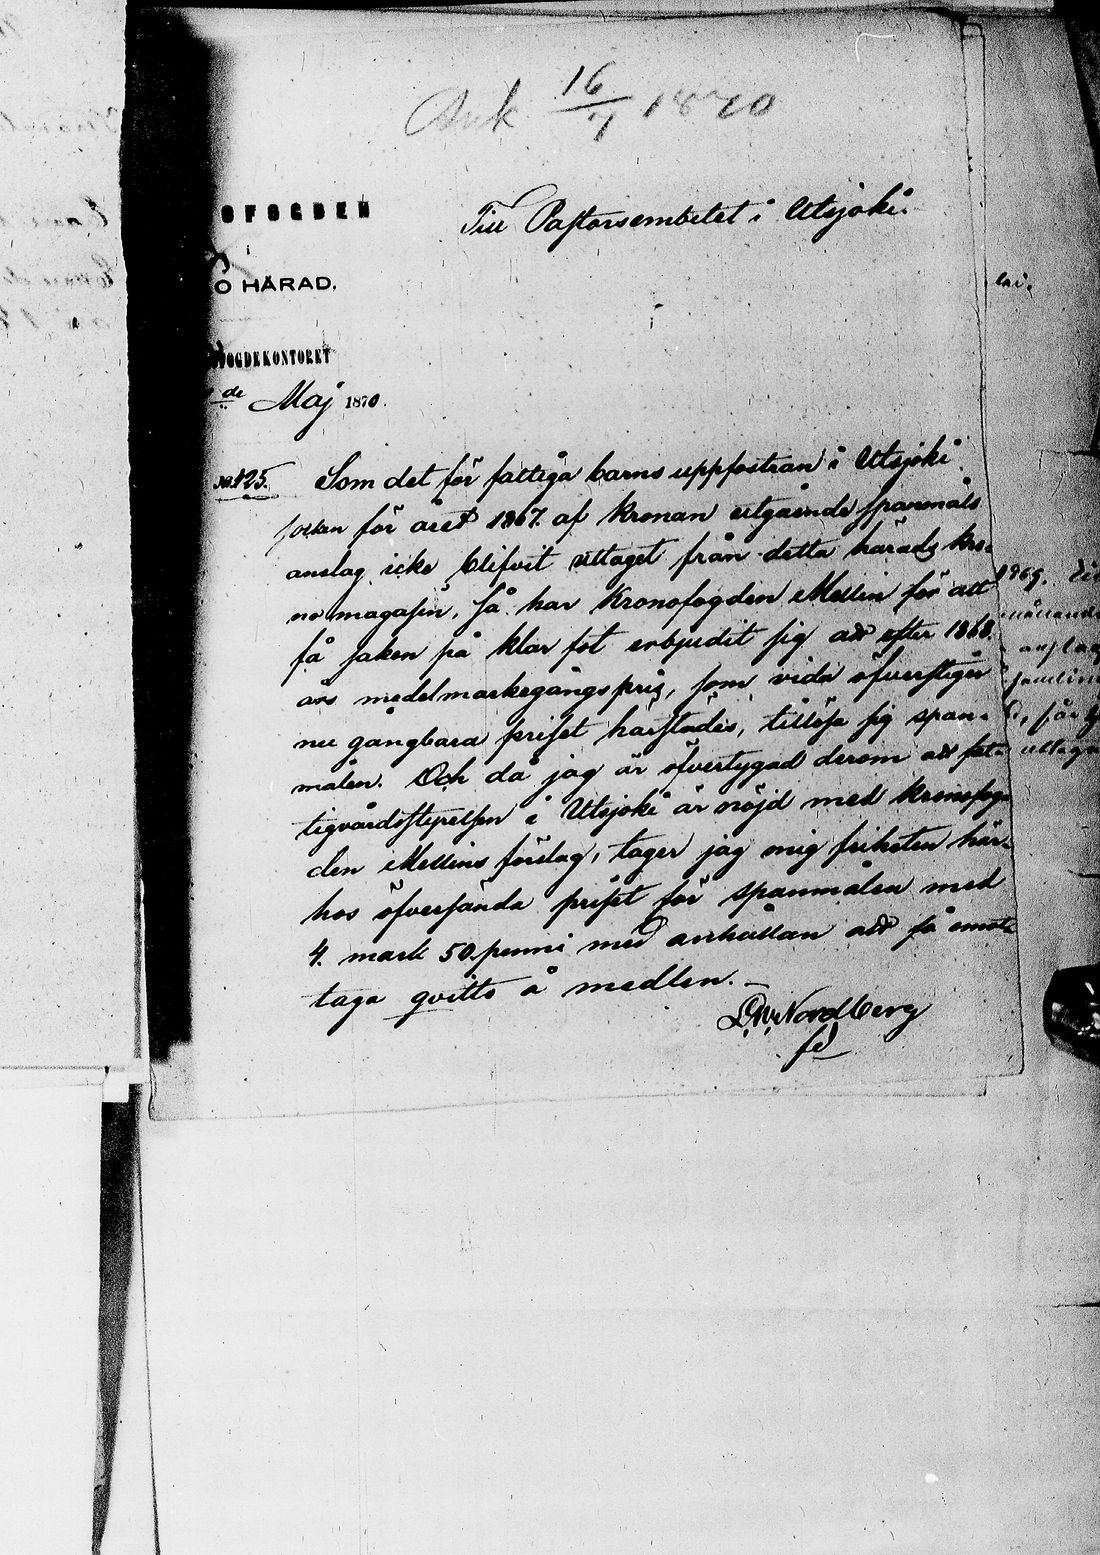 Ank 16/7 1870
OFOGDEN
i
O HÄRAD.
OGDEKONTORET
de Maj 1870.
Till Pastorsembetet i Utsjoki.
No 125. Som det för fattiga barns uppfostran i Utsjoki
socken för året 1867. af Kronan utgående spanmåls
anslag icke blifvit uttaget från detta härads kro-
no magasin, så har Kronofogden Mellin för att
få saken på klar fot erbjudit sig att efter 1868.
års medelmarkegångspris, som vida öfverstiger
nu gångbara priset härstädes, tillösa sig span-
målen. Och då jag är öfvertygad derom att fat-
tigvårdsstyrelsen i Utsjoki är nöjd med Kronofog-
den Mellins förslag, tager jag mig friheten här-
hos öfversända priset för spanmålen med
4. mark 50. penni med anhållan att få emot-
taga qvitto å medlen.
Nordberg